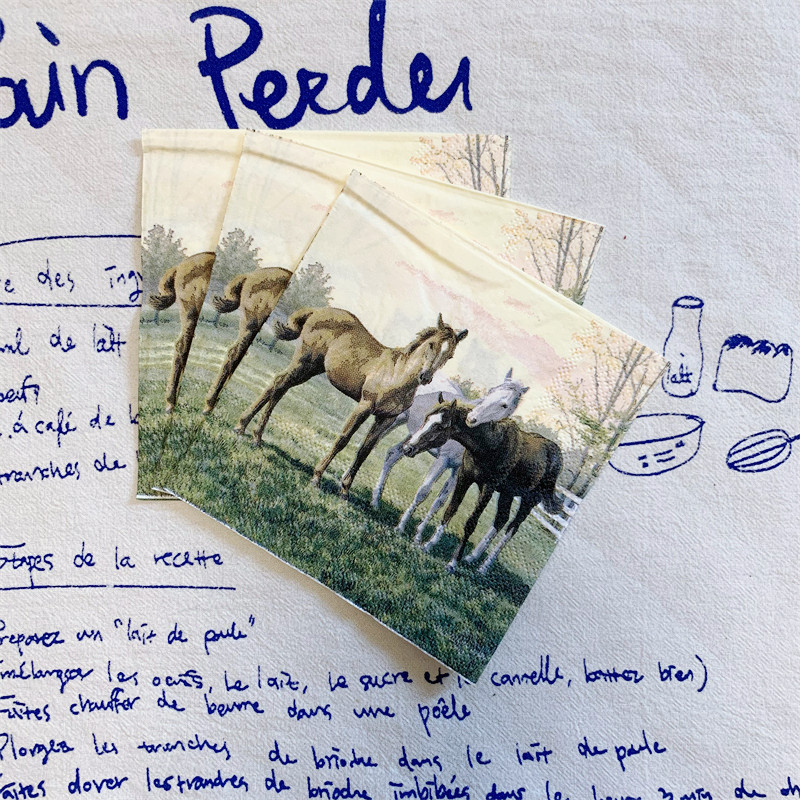 ain Perdu
e des ing
ml de lait
oeufs
. à café de
tranches de
lait
Etapes de la recette
Preparez un "lait de poule"
mélanger les oeufs, le lait, le sucre et l cannelle, battez bien)
Faites chauffer de beurre dans une poêle
Plongez les tranches de brioche dans le lait de poule
Faites dorer les tranches de brioche imbibées dans le beurre 2 min de ch